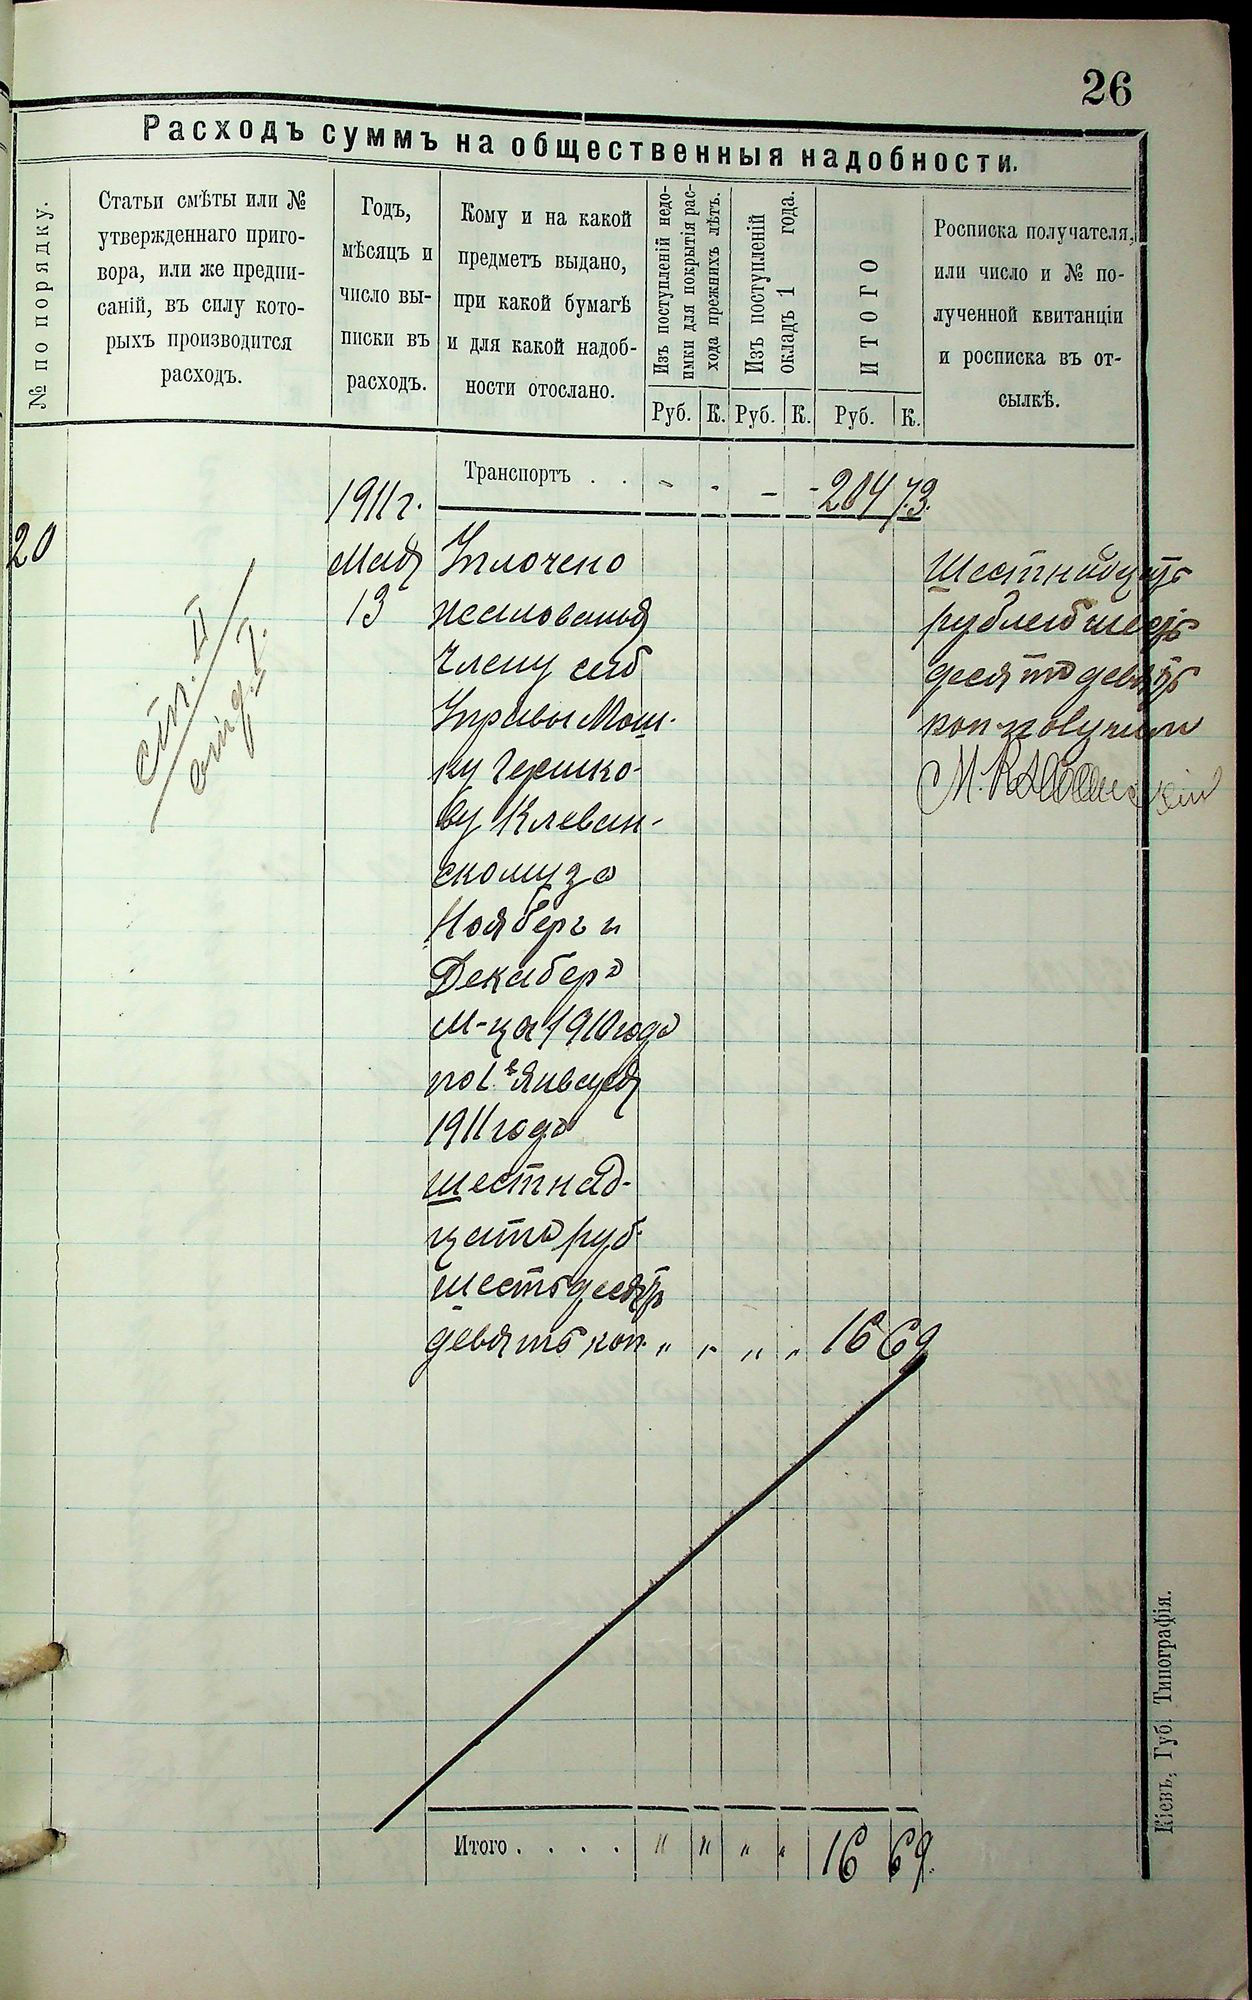 26
Расходъ суммъ на общественныя надобности.
№ по порядку.
Статьи смѣты или №
утвержденнаго приго-
вора, или же предпи-
саній, въ силу кото-
рыхъ производится
расходъ.
Годъ,
мѣсяцъ и
число вы-
писки въ
расходъ.
Кому и на какой
предметъ выдано,
при какой бумагѣ
и для какой надоб-
ности отослано.
Изъ поступленій недо-
имки для покрытія рас-
хода прежнихъ лѣтъ.
Изъ поступленій
окладъ 1 года.
ИТОГО
Росписка получателя,
или число и № по-
лученной квитанціи
и росписка въ от-
сылкѣ.
Руб. К. Руб. К. Руб. К.
Транспортъ . . - - - - 204 73.
1911 г.
20
Мая
13
ст. II
Уплочено
жалованья
Члену сей
Управы Мош-
ку Гершко-
ву Клеван-
скому за
Ноябрь и
Декаберь
м-ца 1910 года
по 1 е Января
1911 года
шестнад-
цать руб.
шестьдесятъ
девять коп. „ „ „ „ 16 69
Шестнадцать
рублей шесть
десятъ девять
коп. получилъ
М. Клеванский
Итого . . . . „ „ „ „ 16 69.
Кіевъ, Губ. Типографія.